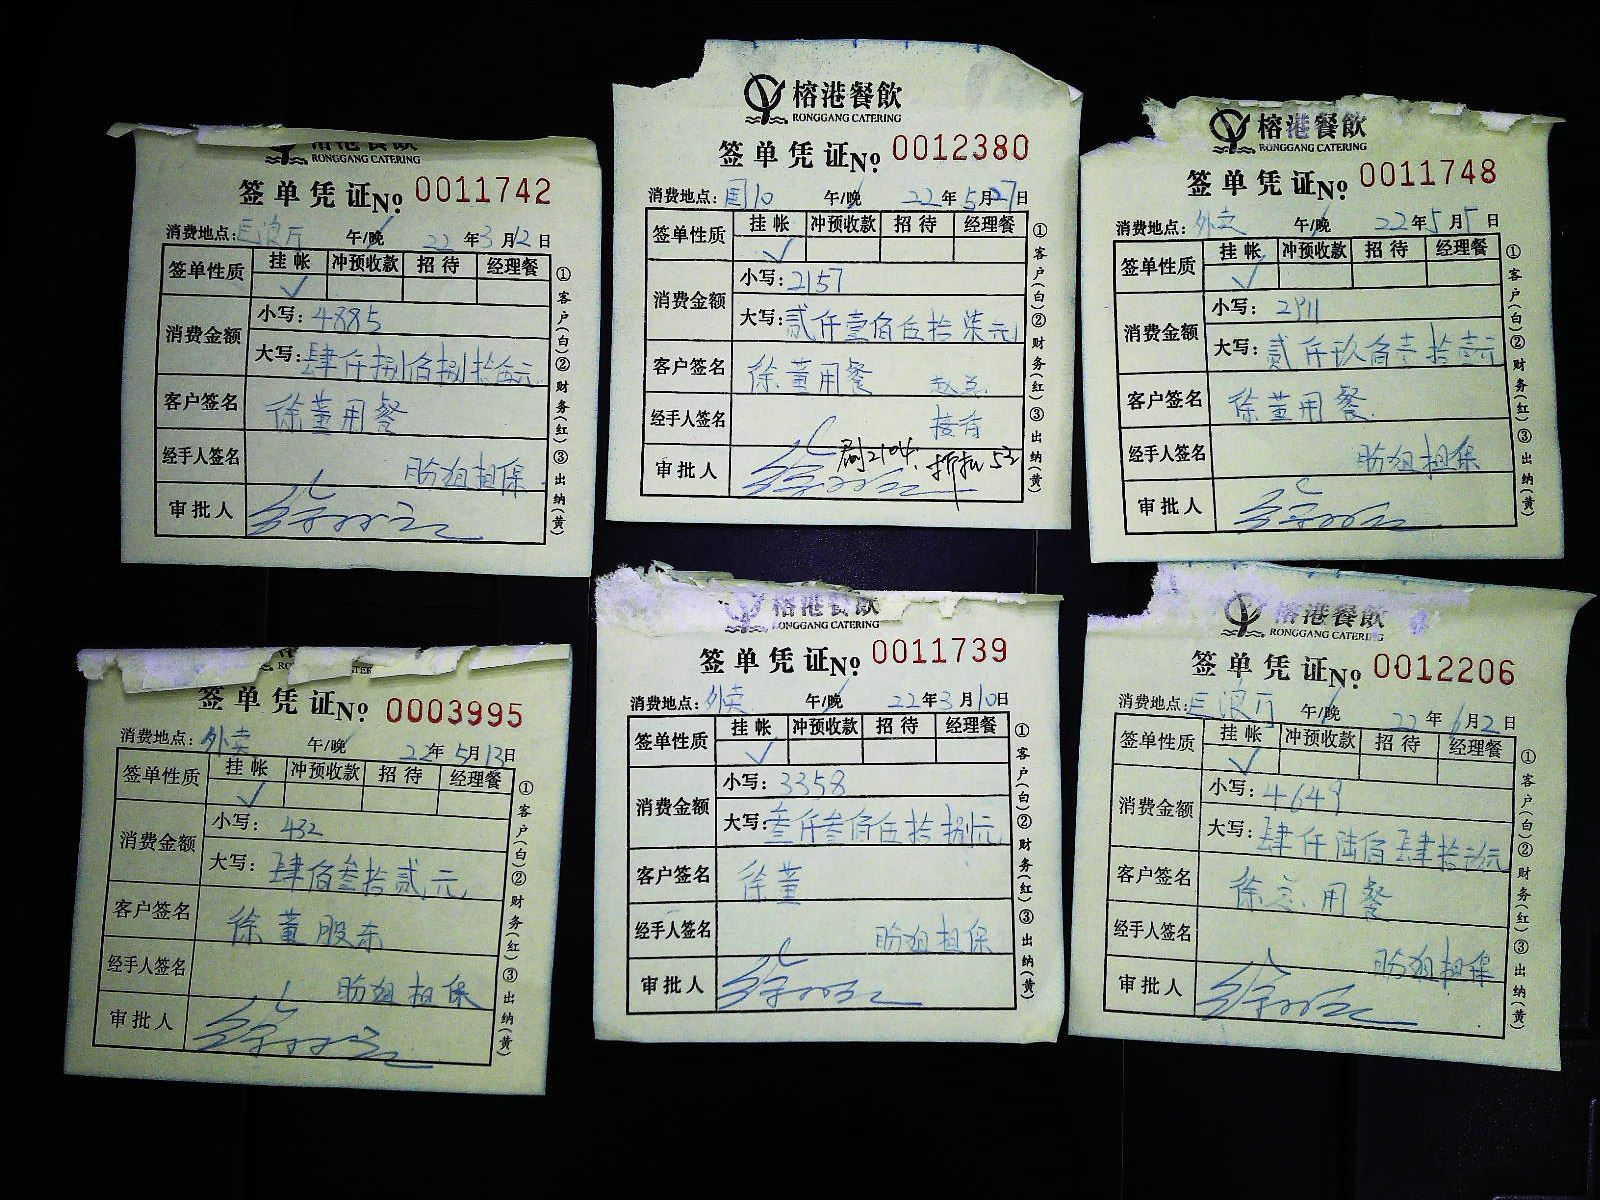 榕港餐飲
RONGGANG CATERING
签单凭证No. 0011742
消费地点: 午/晚 22年3月12日
签单性质 挂帐 冲预收款 招待 经理餐
✓
消费金额 小写: 4885
大写: 肆仟捌佰捌拾伍元
客户签名 徐董用餐
经手人签名 担保
审批人
①客户(白)②财务(红)③出纳(黄)
榕港餐飲
RONGGANG CATERING
签单凭证No. 0012380
消费地点: 国10 午/晚 22年5月27日
签单性质 挂帐 冲预收款 招待 经理餐
✓
消费金额 小写: 2157
大写: 贰仟壹佰伍拾柒元
客户签名 徐董用餐 赵总
经手人签名 接待
审批人
①客户(白)②财务(红)③出纳(黄)
榕港餐飲
RONGGANG CATERING
签单凭证No. 0011748
消费地点: 外卖 午/晚 22年5月5日
签单性质 挂帐 冲预收款 招待 经理餐
✓
消费金额 小写: 2911
大写: 贰仟玖佰壹拾壹元
客户签名 徐董用餐
经手人签名 担保
审批人
①客户(白)②财务(红)③出纳(黄)
签单凭证No. 0003995
消费地点: 外卖 午/晚 22年5月13日
签单性质 挂帐 冲预收款 招待 经理餐
✓
消费金额 小写: 432
大写: 肆佰叁拾贰元
客户签名 徐董股东
经手人签名 担保
审批人
①客户(白)②财务(红)③出纳(黄)
榕港餐飲
RONGGANG CATERING
签单凭证No. 0011739
消费地点: 外卖 午/晚 22年3月10日
签单性质 挂帐 冲预收款 招待 经理餐
✓
消费金额 小写: 3358
大写: 叁仟叁佰伍拾捌元
客户签名 徐董
经手人签名 担保
审批人
①客户(白)②财务(红)③出纳(黄)
榕港餐飲
RONGGANG CATERING
签单凭证No. 0012206
消费地点: 午/晚 22年6月2日
签单性质 挂帐 冲预收款 招待 经理餐
✓
消费金额 小写: 4649
大写: 肆仟陆佰肆拾玖元
客户签名 徐总用餐
经手人签名 担保
审批人
①客户(白)②财务(红)③出纳(黄)